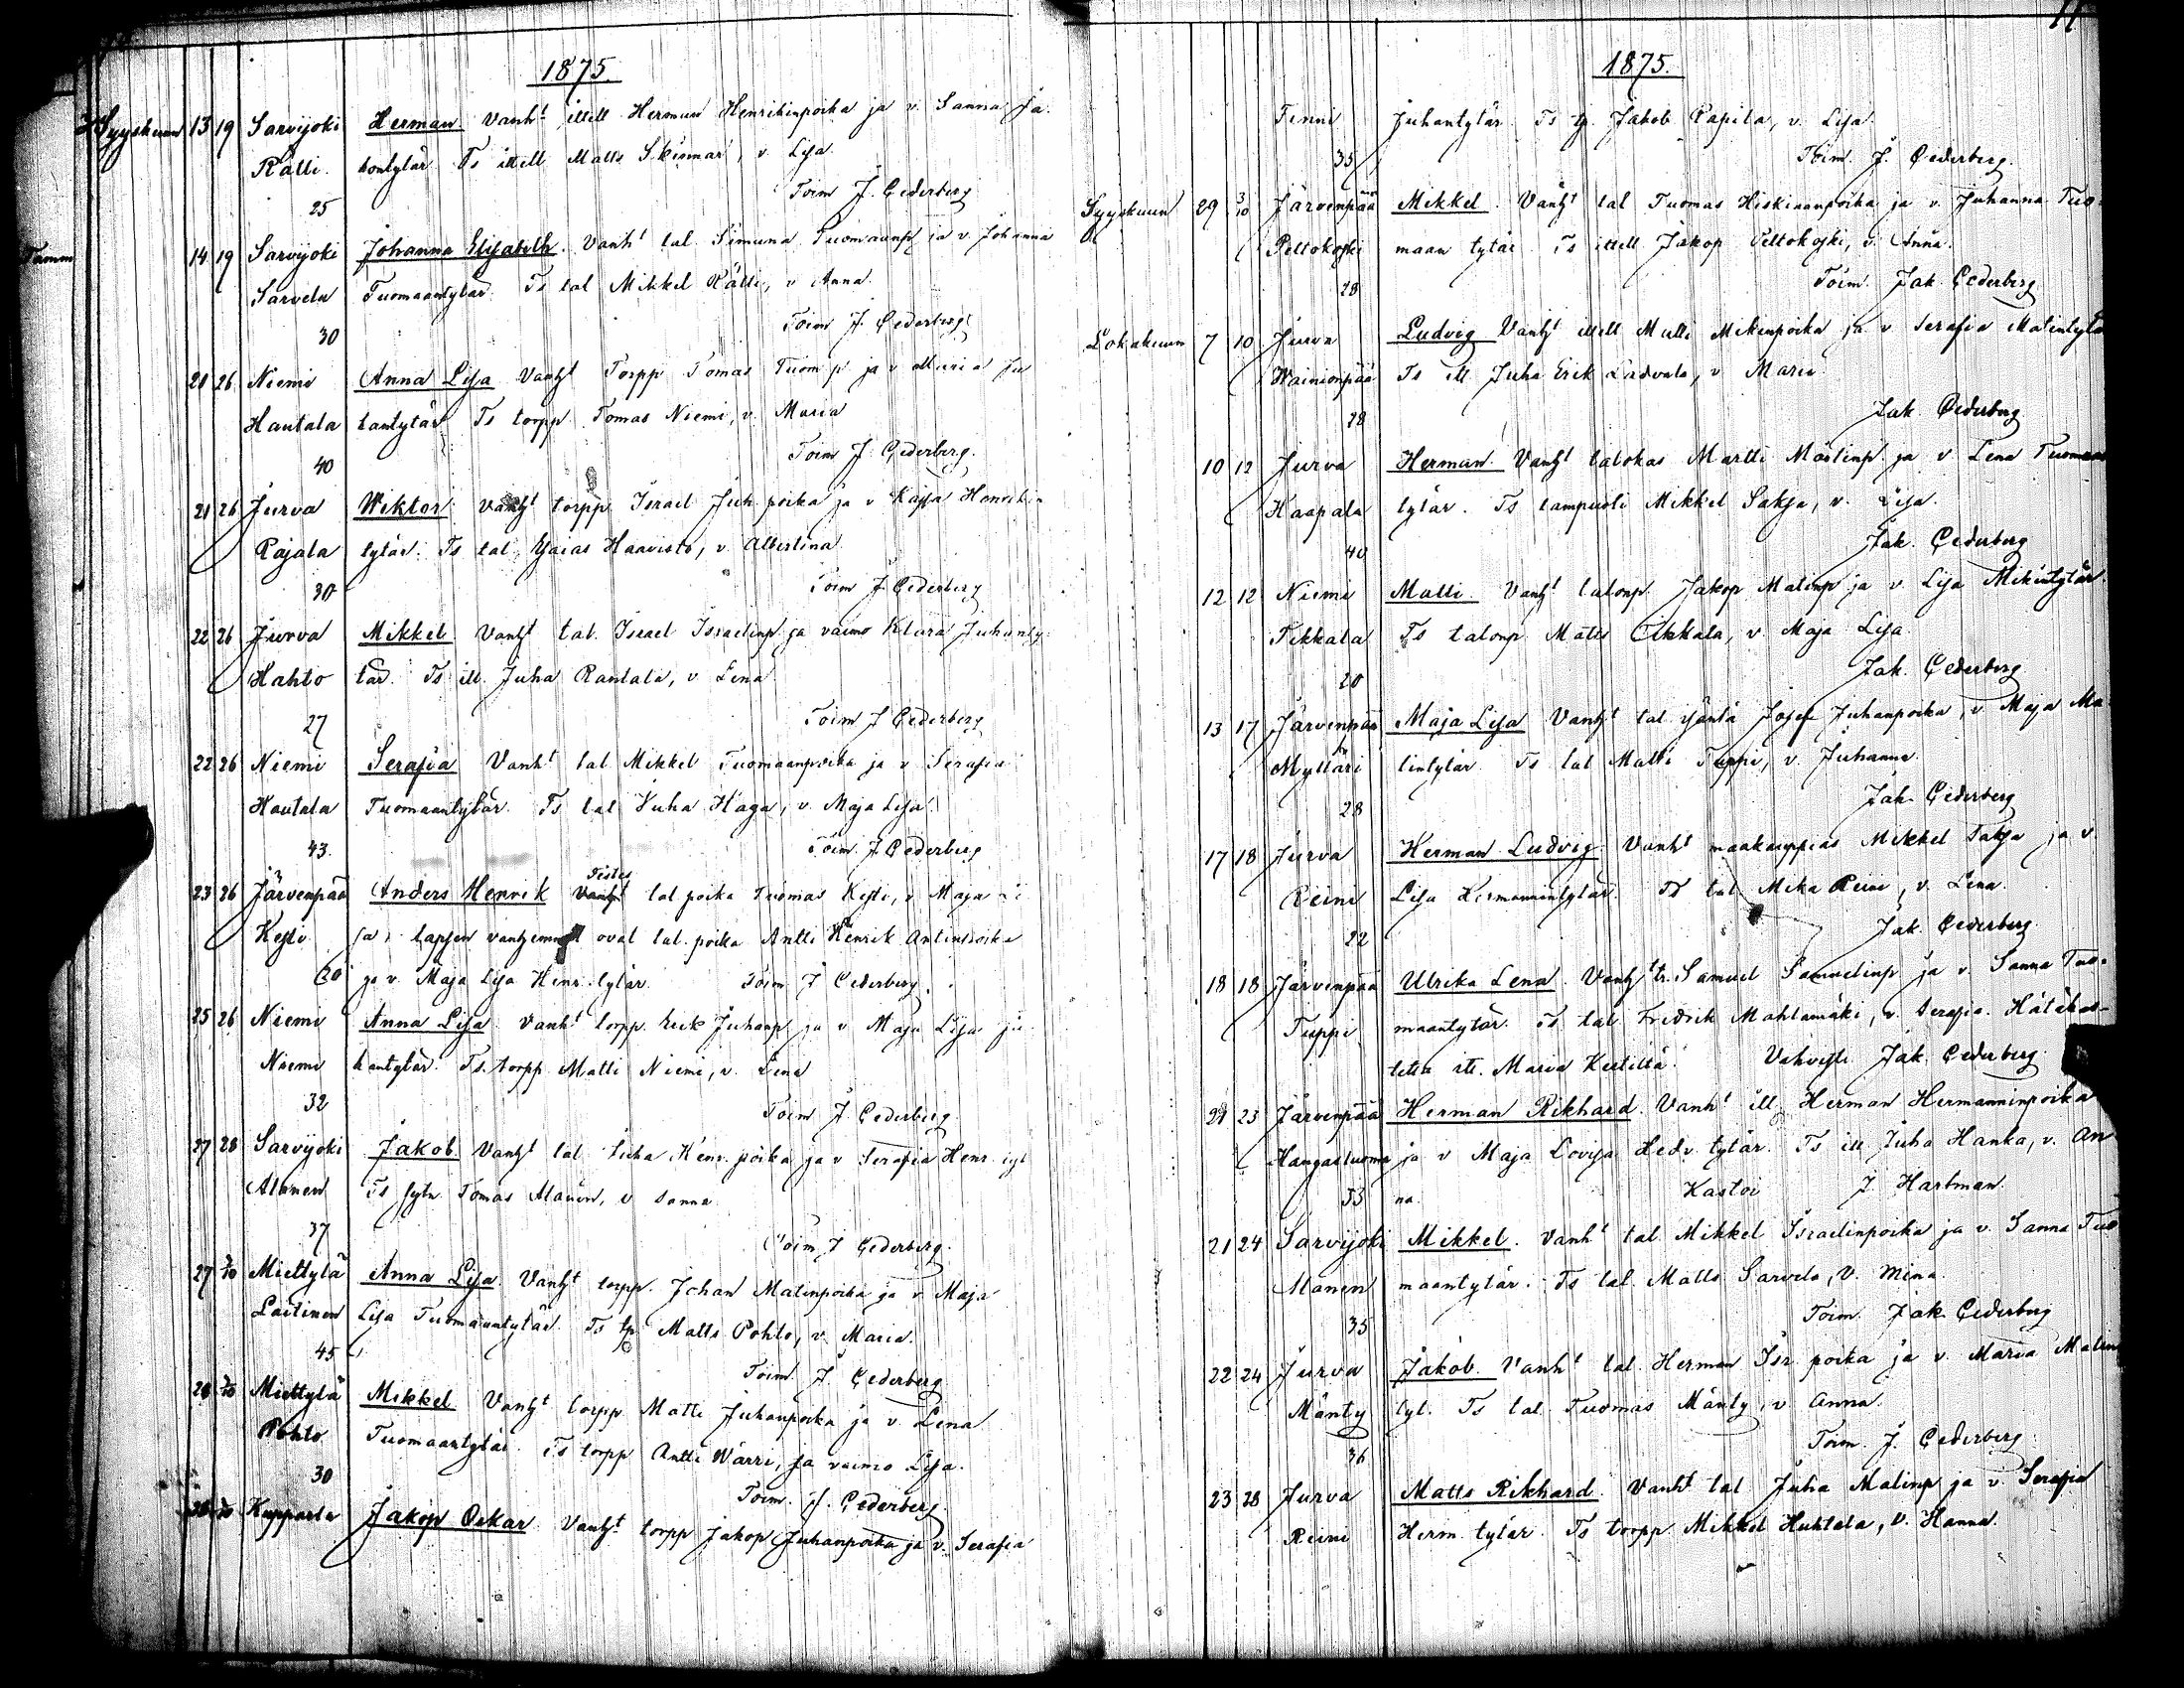 1875.
Syyskuun 13 19 Sarvijoki Herman. Vanht ittell Herman Henrikinpoika ja v. Sanna Ja-
Rätti. kontytär. Ts ittell Matts Skinnar, v. Lisa.
25 Toim J. Cederberg
14 19 Sarvijoki Johanna Elisabeth. Vanht tal. Simuna Tuomaanp ja v. Johanna
Sarvela Tuomaantytär. Ts tal Mikkel Rätti, v Anna.
30 Toim J. Cederberg
26 Niemi Anna Lisa Vanht Torpp Tomas Tuom p ja v Maria Ju
Hautala hantytär Ts torpp Tomas Niemi, v. Maria
40 Toim J. Cederberg.
21 26 Jurva Wiktor. Vanht torpp Israel Juh. poika ja v Kajsa Henrikin
Rajala tytär. Ts tal. Esaias Haavisto, v. Albertina.
30 Toim J. Cederberg
22 26 Jurva Mikkel Vanht tal. Israel Israelinp. ja vaimo Klara Juhanty
Hahto tär. Ts itt. Juha Rantala, v Lena
27 Toim J Cederberg
22 26 Niemi Serafia Vanht tal Mikkel Tuomaanpoika ja v Serafia
Hautala Tuomaantytär. Ts tal Juha Haga, v. Maja Lisa.
43. Toim. J. Cederberg
Tistes
23 26 Järvenpää Anders Henrik Vanht tal poika Tuomas Kesti, v Maja
Kesti lapsen vanhemmat ovat tal. poika Antti Henrik Antinpoika
20 ja v. Maja Lisa Henr. tytär. Toim J Cederberg.
25 26 Niemi Anna Lisa. Vanht torpp. Erik Juhanp ja v Maja Lisa Ju
Niemi hantytär. Ts. torpp Matti Niemi, v. Lena
32 Toim J. Cederberg.
27 28 Sarvijoki Jakob. Vanht tal Juha Henr. poika ja v Serafia Henr. tyt
Alanen Ts Tomas Alanen, v Sanna
37 Toim J Cederberg.
27 3/10 Miettylä Anna Lisa Vanht torpp. Johan Matinpoika ja v Maja
Laitinen Lisa Tuomaantytär. Ts tp Matts Pohto, v. Maria.
45 Toim. J Cederberg
28 3/10 Miettylä Mikkel Vanht torpp Matti Juhanpoika ja v. Lena
Pohto. Tuomaantytär. Ts torpp Antti Warri, ja vaimo Lisa.
30 Toim. J. Cederberg
Kupparla Jakop Oskar. Vanht torpp Jakop Juhanpoika ja v. Serafia
1875.
Tenni Juhantytär. Ts tp. Jakob Rapila, v. Lisa
35 Toim. J. Cederberg.
Syyskuun 29 3/10 Järvenpää Mikkel. Vanht tal Tuomas Hiskiaanpoika ja v. Juhanna Tuo-
Peltokoski maan tytär. Ts ittell Jakop Peltokoski, v. Anna.
28 Toim. Jak. Cederberg
Lokakuun 7 10 Jurva Ludvig Vanht ittell Matti Mikinpoika ja v Serafia Matintytä
Wainionpää Ts itt Juha Erik Ladvala, v Maria
28 Jak. Cederberg
10 12 Jurva Herman. Vanht talokas Martti Martinp. ja v Lena Tuomaan
Haapala tytär. Ts lampuoti Mikkel Saksa, v. Lisa.
40 Jak. Cederberg
12 12 Niemi Matti. Vanht talonp. Jakop Matinp ja v. Lisa Mikintytär.
Tikkala Ts talonp Matts Tikkala, v Maja Lisa.
20 Jak. Cederberg
13 17 Järvenpää Maja Lisa Vanht tal. isäntä Josef Juhanpoika, v Maja Ma-
Myllari tintytär. Ts tal Matti Tuppi, v. Juhanna.
28 Jak Cederberg
17 18 Jurva Herman Ludvig. Vanht maakauppias Mikkel Saksa ja v
Reini Lisa Hermanintytär. Ts tal Mika Reini, v. Lena.
22 Jak. Cederberg.
18 18 Järvenpää Ulrika Lena. Vanht tr. Samuel Samuelinp ja v. Sanna Tuo-
Tuppi maantytär. Ts tal Fredrik Mahlamäki, v. Serafia. Hätäkas-
tettu itt. Maria Kertiltä. Vahvisti Jak. Cederberg
21 23 Järvenpää Herman Rikhard. Vanht itt. Herman Hermanninpoika
Hangasluoma ja v Maja Lovisa Hedv. tytär. Ts itt Juha Hanka, v. An
33 na. Kastoi J. Hartman.
21 24 Sarvijoki Mikkel. Vanht tal. Mikkel Israelinpoika ja v. Sanna Tuo
Alanen maantytär. Ts tal. Matts Sarvela, v. Mina.
35 Toim. Jak. Cederberg
22 24 Jurva Jakob. Vanht tal. Herman Isr. poika ja v. Maria Matin
Mänty tyt. Ts tal Tuomas Mänty, v. Anna.
36 Toim. J. Cederberg
23 28 Jurva Matts Rikhard. Vanht tal Juha Matinp ja v Serafia
Reini Herm. tytär. Ts torpp Mikkel Huhtala, v. Hanna.